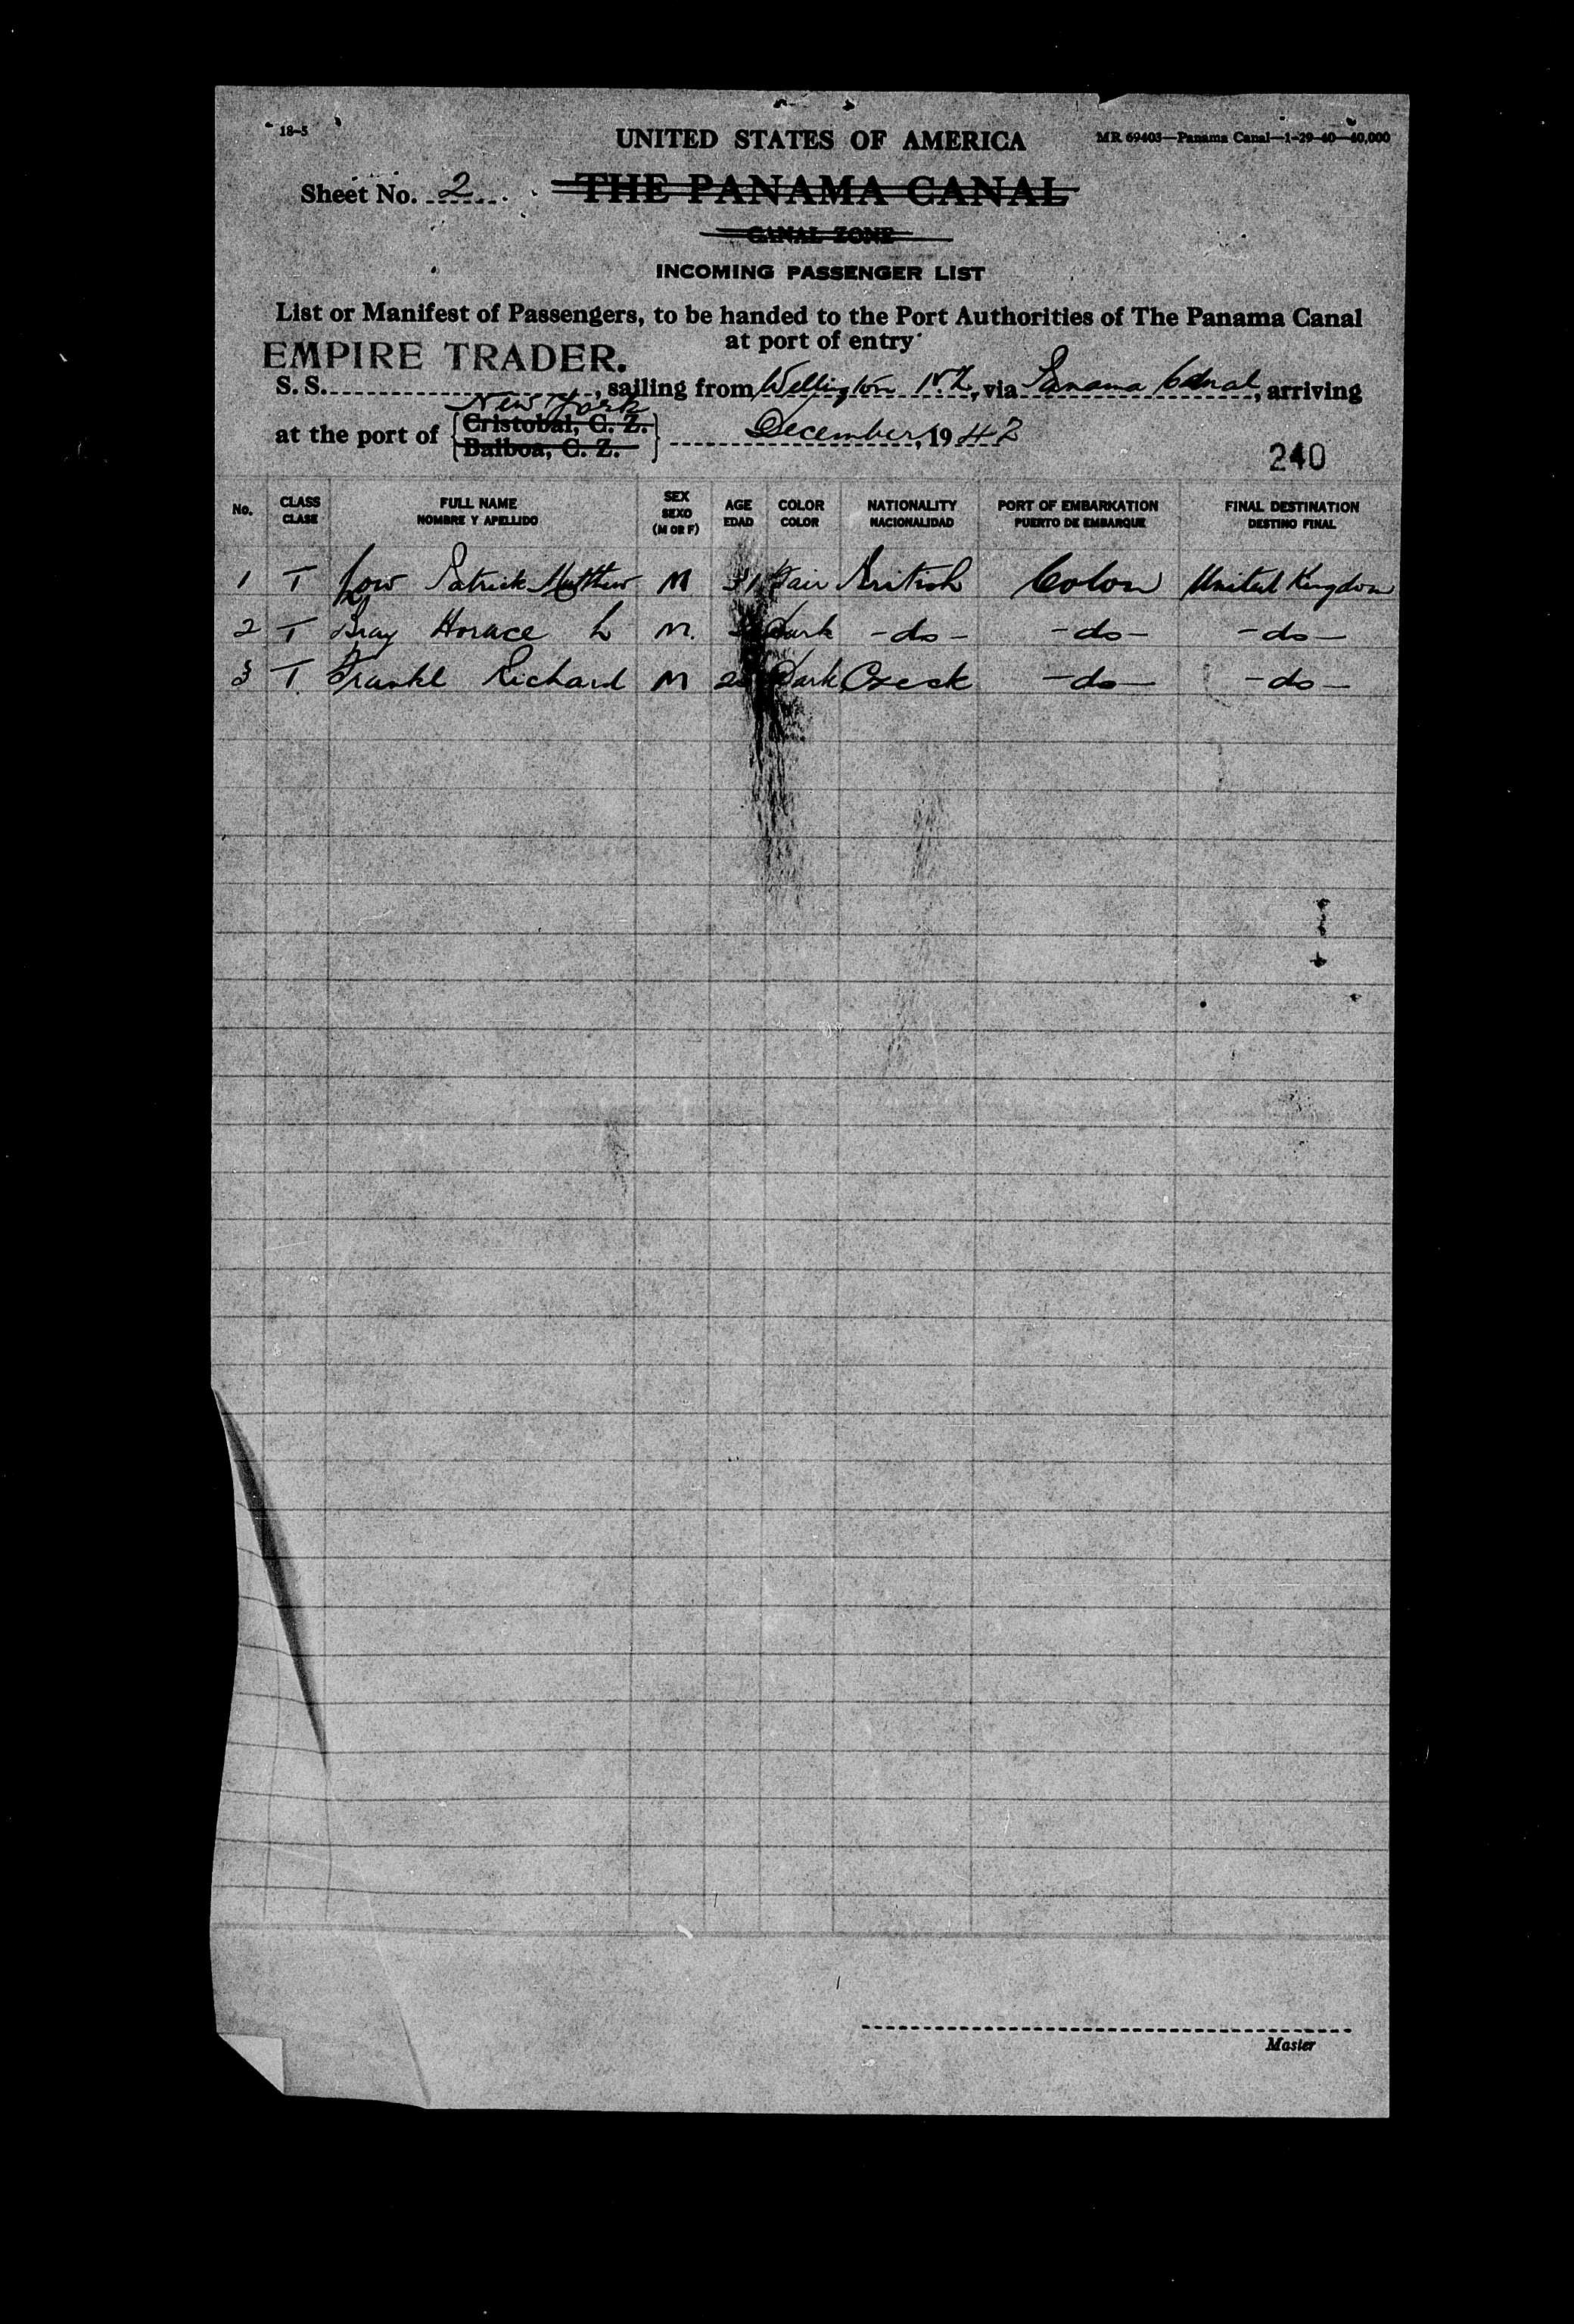 18-5
UNITED STATES OF AMERICA
MR 69403—Panama Canal—1-29-40—40,000
Sheet No. 2
THE PANAMA CANAL
CANAL ZONE
INCOMING PASSENGER LIST
List or Manifest of Passengers, to be handed to the Port Authorities of The Panama Canal
at port of entry
EMPIRE TRADER.
S. S. , sailing from Wellington N.Z, via Panama Canal, arriving
New York
at the port of { Cristobal, C. Z. Balboa, C. Z. } December, 1942
240
No. CLASS CLASE FULL NAME NOMBRE Y APELLIDO SEX SEXO (M OR F) AGE EDAD COLOR COLOR NATIONALITY NACIONALIDAD PORT OF EMBARKATION PUERTO DE EMBARQUE FINAL DESTINATION DESTINO FINAL
1 T Low Patrick Matthew M 31 Fair British Colon United Kingdom
2 T Bray Horace L M. Dark -do- -do- -do-
3 T Frankl Richard M Dark Czeck -do- -do-
Master